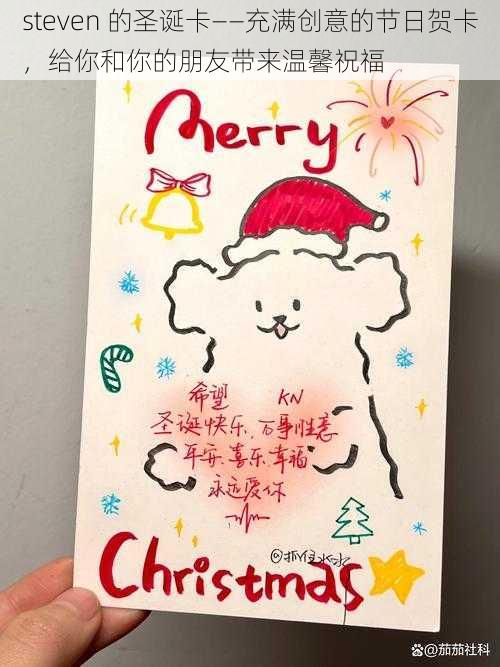 steven 的圣诞卡——充满创意的节日贺卡
，给你和你的朋友带来温馨祝福
Merry
希望 KN
圣诞快乐、万事胜意
平安、喜乐、幸福
永远爱你
@抓住水水
Christmas
@茄茄社科